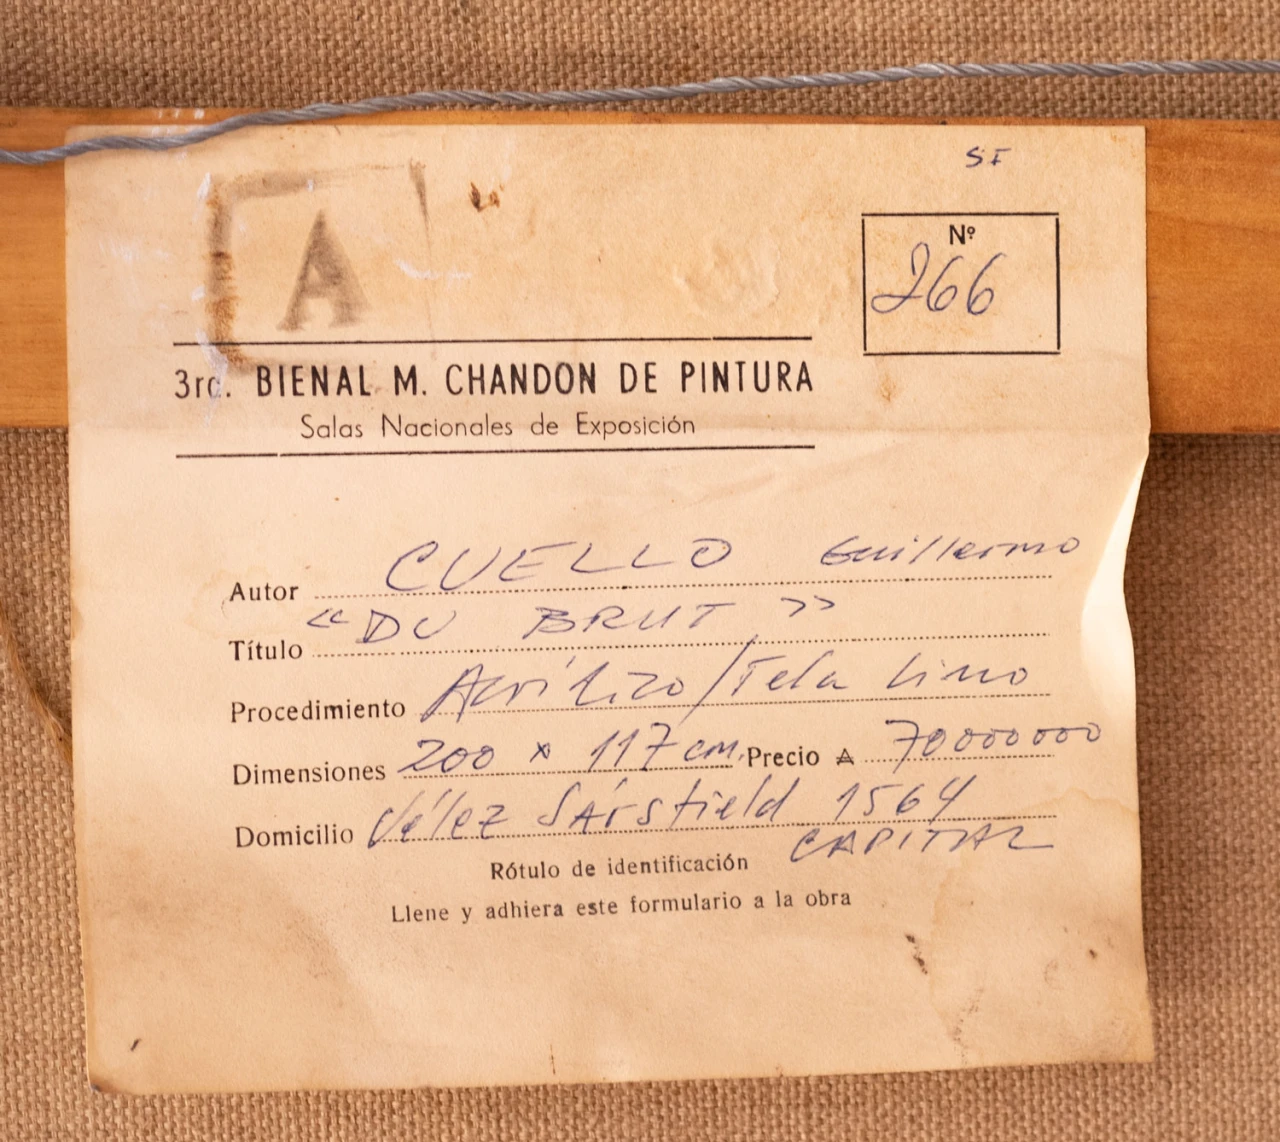 SI
A
Nº
266
3ra. BIENAL M. CHANDON DE PINTURA
Salas Nacionales de Exposición
Autor CUELLO Guillermo
Título "DU BRUT"
Procedimiento Acrílico/Tela Lino
Dimensiones 200 x 117 cm. Precio ₳ 70000000
Domicilio Vélez Sársfield 1564
CAPITAL
Rótulo de identificación
Llene y adhiera este formulario a la obra